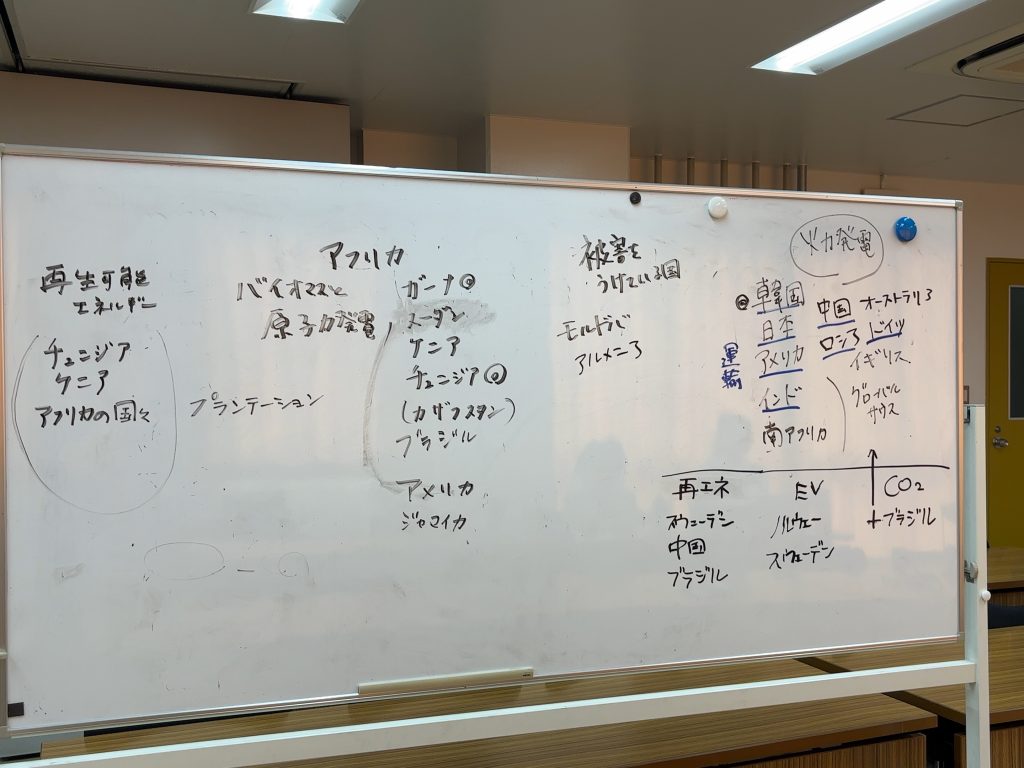 再生可能
エネルギー
チュニジア
ケニア
アフリカの国々
プランテーション
アフリカ
バイオマスと
原子力発電
ガーナ◎
スーダン
ケニア
チュニジア◎
(カザフスタン)
ブラジル
アメリカ
ジャマイカ
被害を
うけている国
モルドバ
アルメニア
火力発電
◎韓国
日本
アメリカ
インド
南アフリカ
運輸
中国
ロシア
オーストラリア
ドイツ
イギリス
グローバル
サウス
再エネ
スウェーデン
中国
ブラジル
EV
ノルウェー
スウェーデン
↑ CO2
+ブラジル